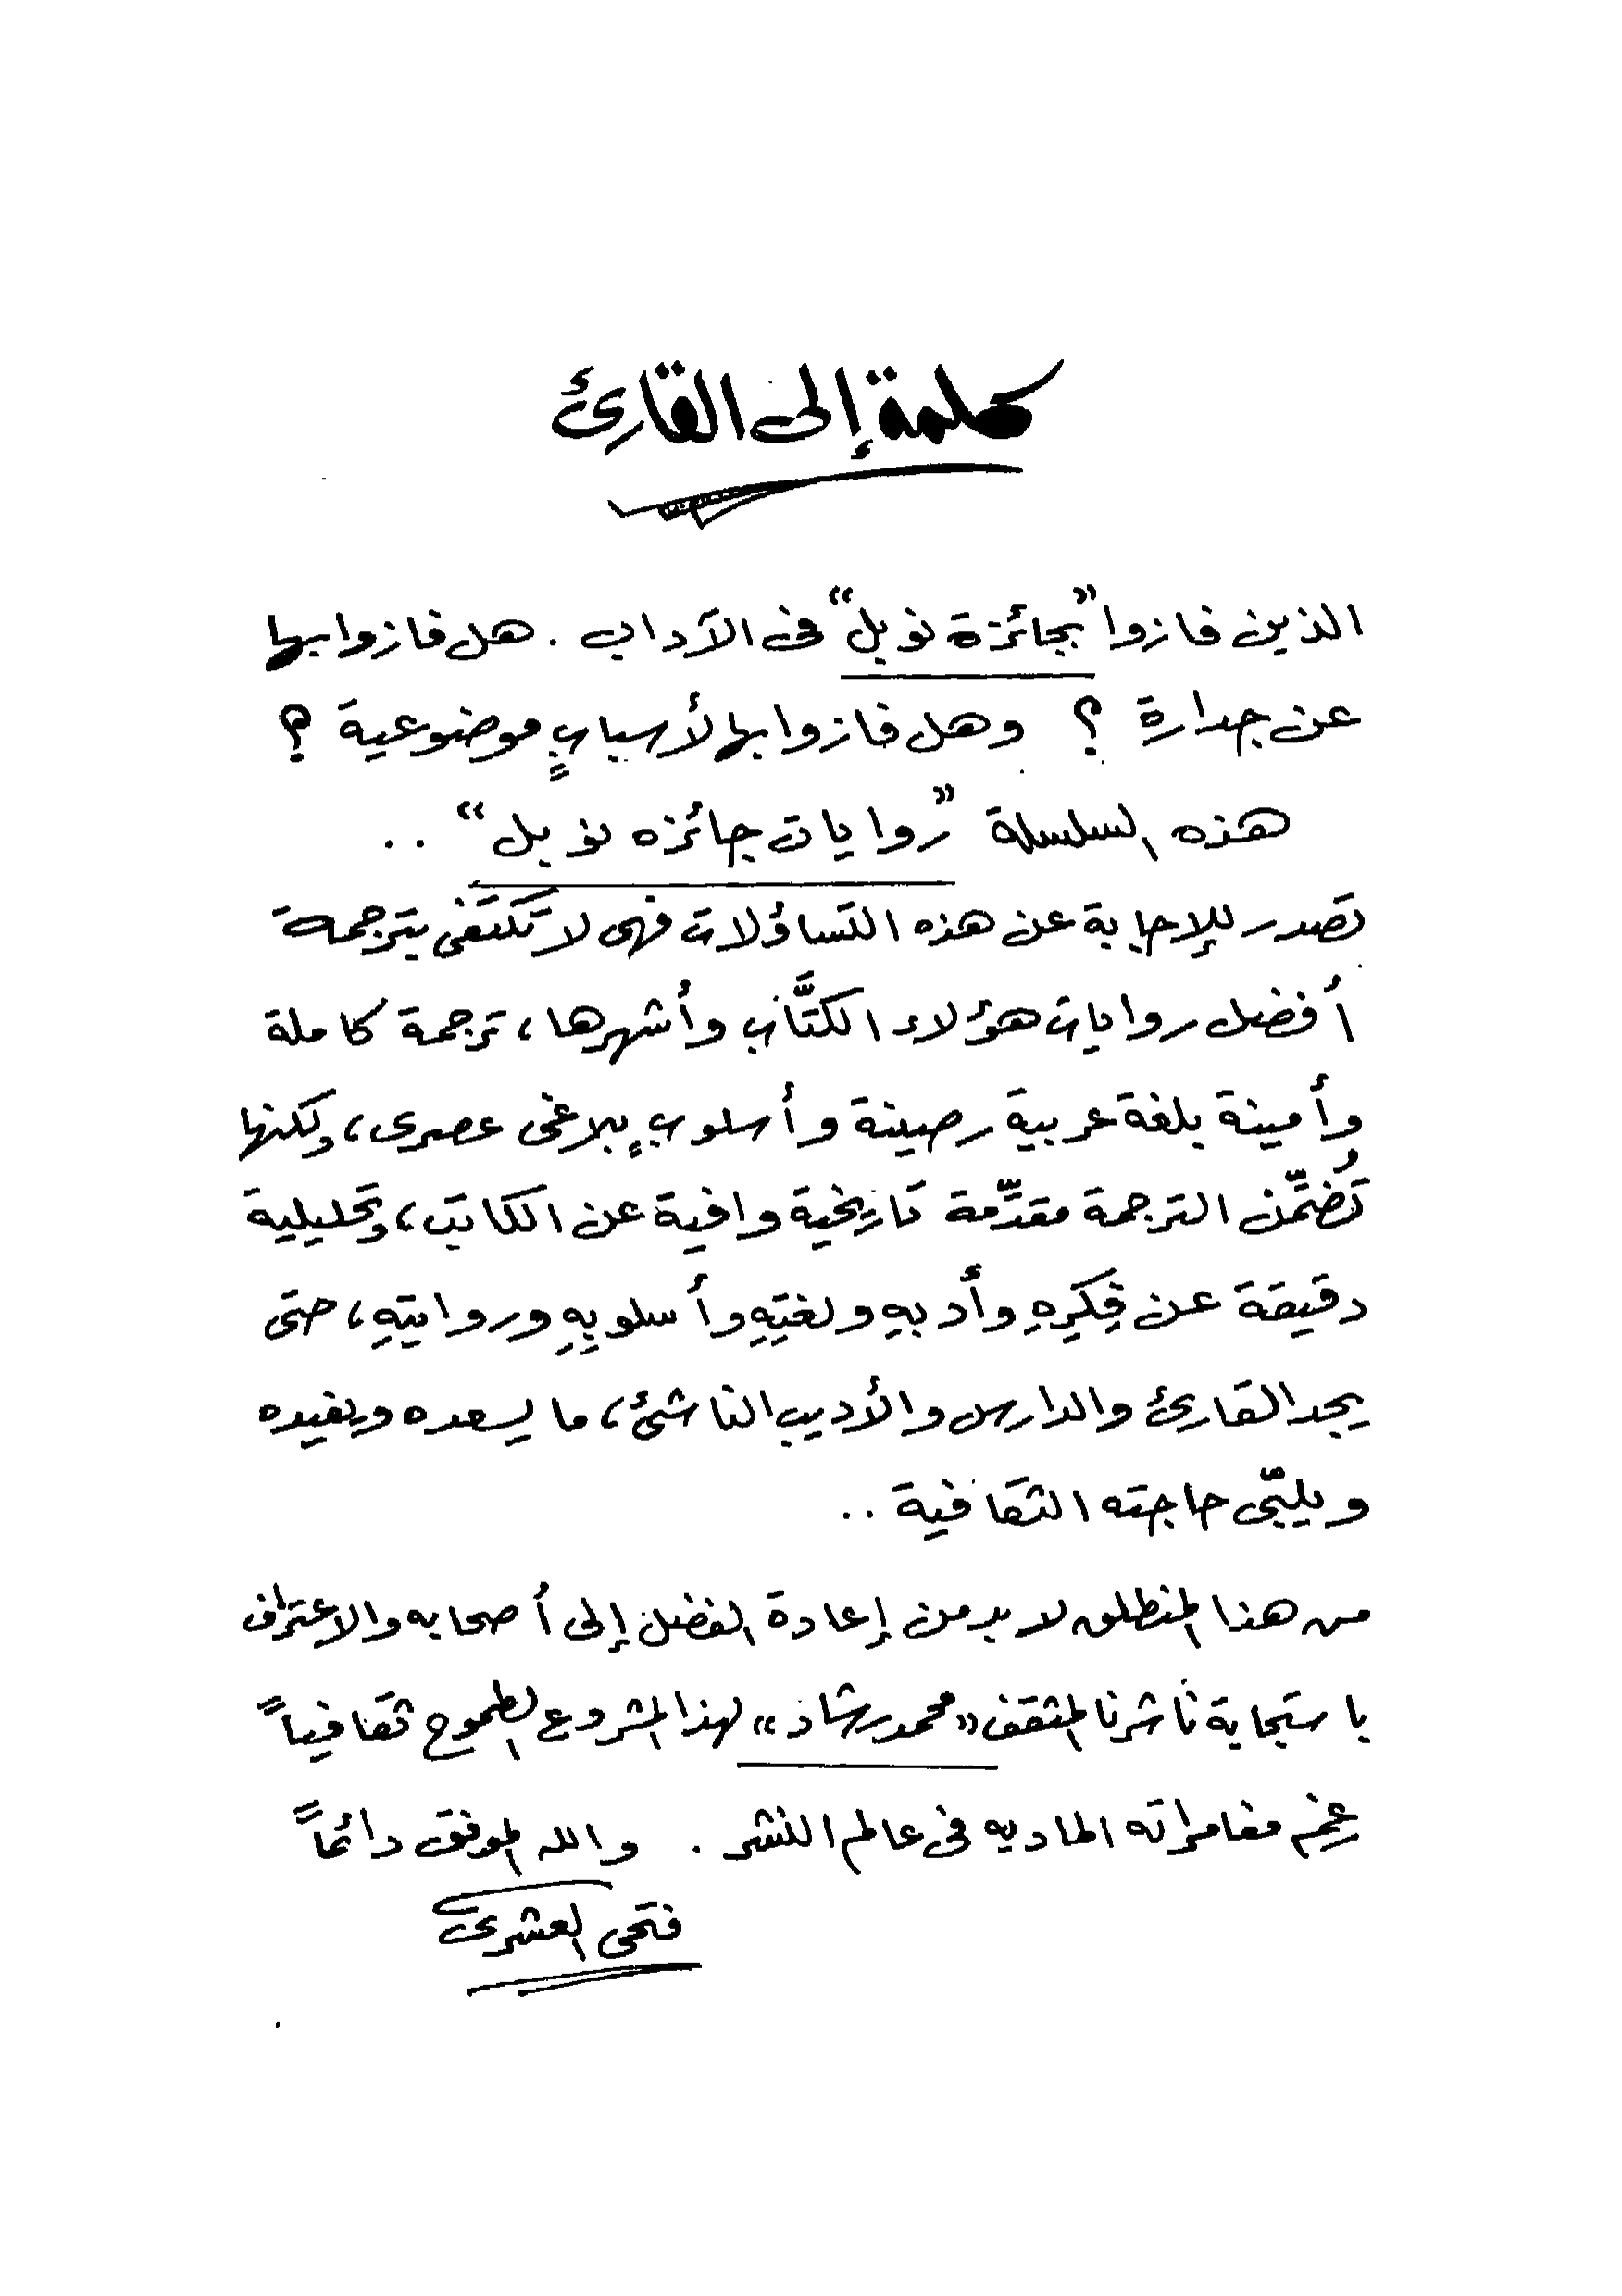 كلمة إلى القارئ
الذين فازوا "بجائزة نوبل" فى الآداب . هل فازوا بها
عن جدارة ؟ وهل فازوا بها لأسبابٍ موضوعية ؟
هذه السلسلة "روايات جائزه نوبل" ..
تصدر للإجابة عن هذه التساؤلات فهى لا تكتفى بترجمة
أفضل روايات هؤلاء الكتَّاب وأشهرها ، ترجمة كاملة
وأمينة بلغة عربية رصينة وأسلوبٍ بلاغى عصرى ، ولكنها
تُضمِّن الترجمة مقدِّمة تاريخية وافية عن الكاتب ، وتحليلية
دقيقة عن فِكَرِهِ وأدبهِ ولغتِهِ وأسلوبِهِ وروايتِهِ ، حتى
يجد القارئ والدارس والأديب الناشئ ، ما يسعده ويفيده
ويلبّى حاجته الثقافية ..
من هذا المنطلق لابد من إعادة الفضل إلى أصحابه والاعتراف
باستجابة ناشرنا المثقف «محمد رشاد» لهذا المشروع الطموح ثقافياً
مغامراته الماديه فى عالم النشر . والله الموفق دائماً
فتحى العشرى